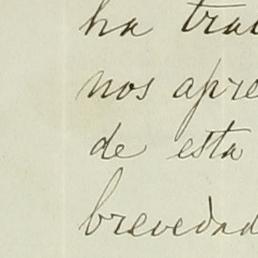 ha trad
nos apre
de esta
brevedad